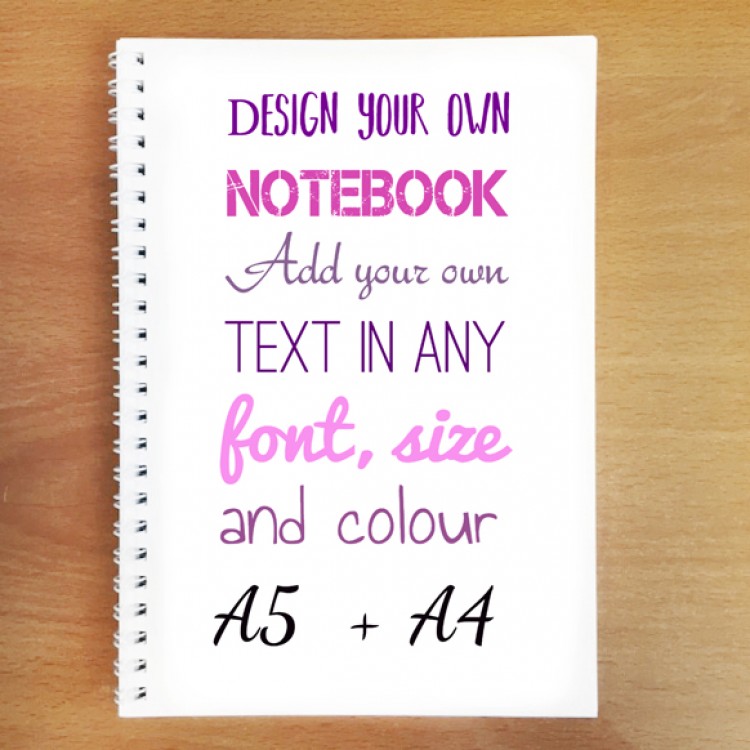 DESIGN YOUR OWN
NOTEBOOK
Add your own
TEXT IN ANY
font, size
and colour
A5 + A4